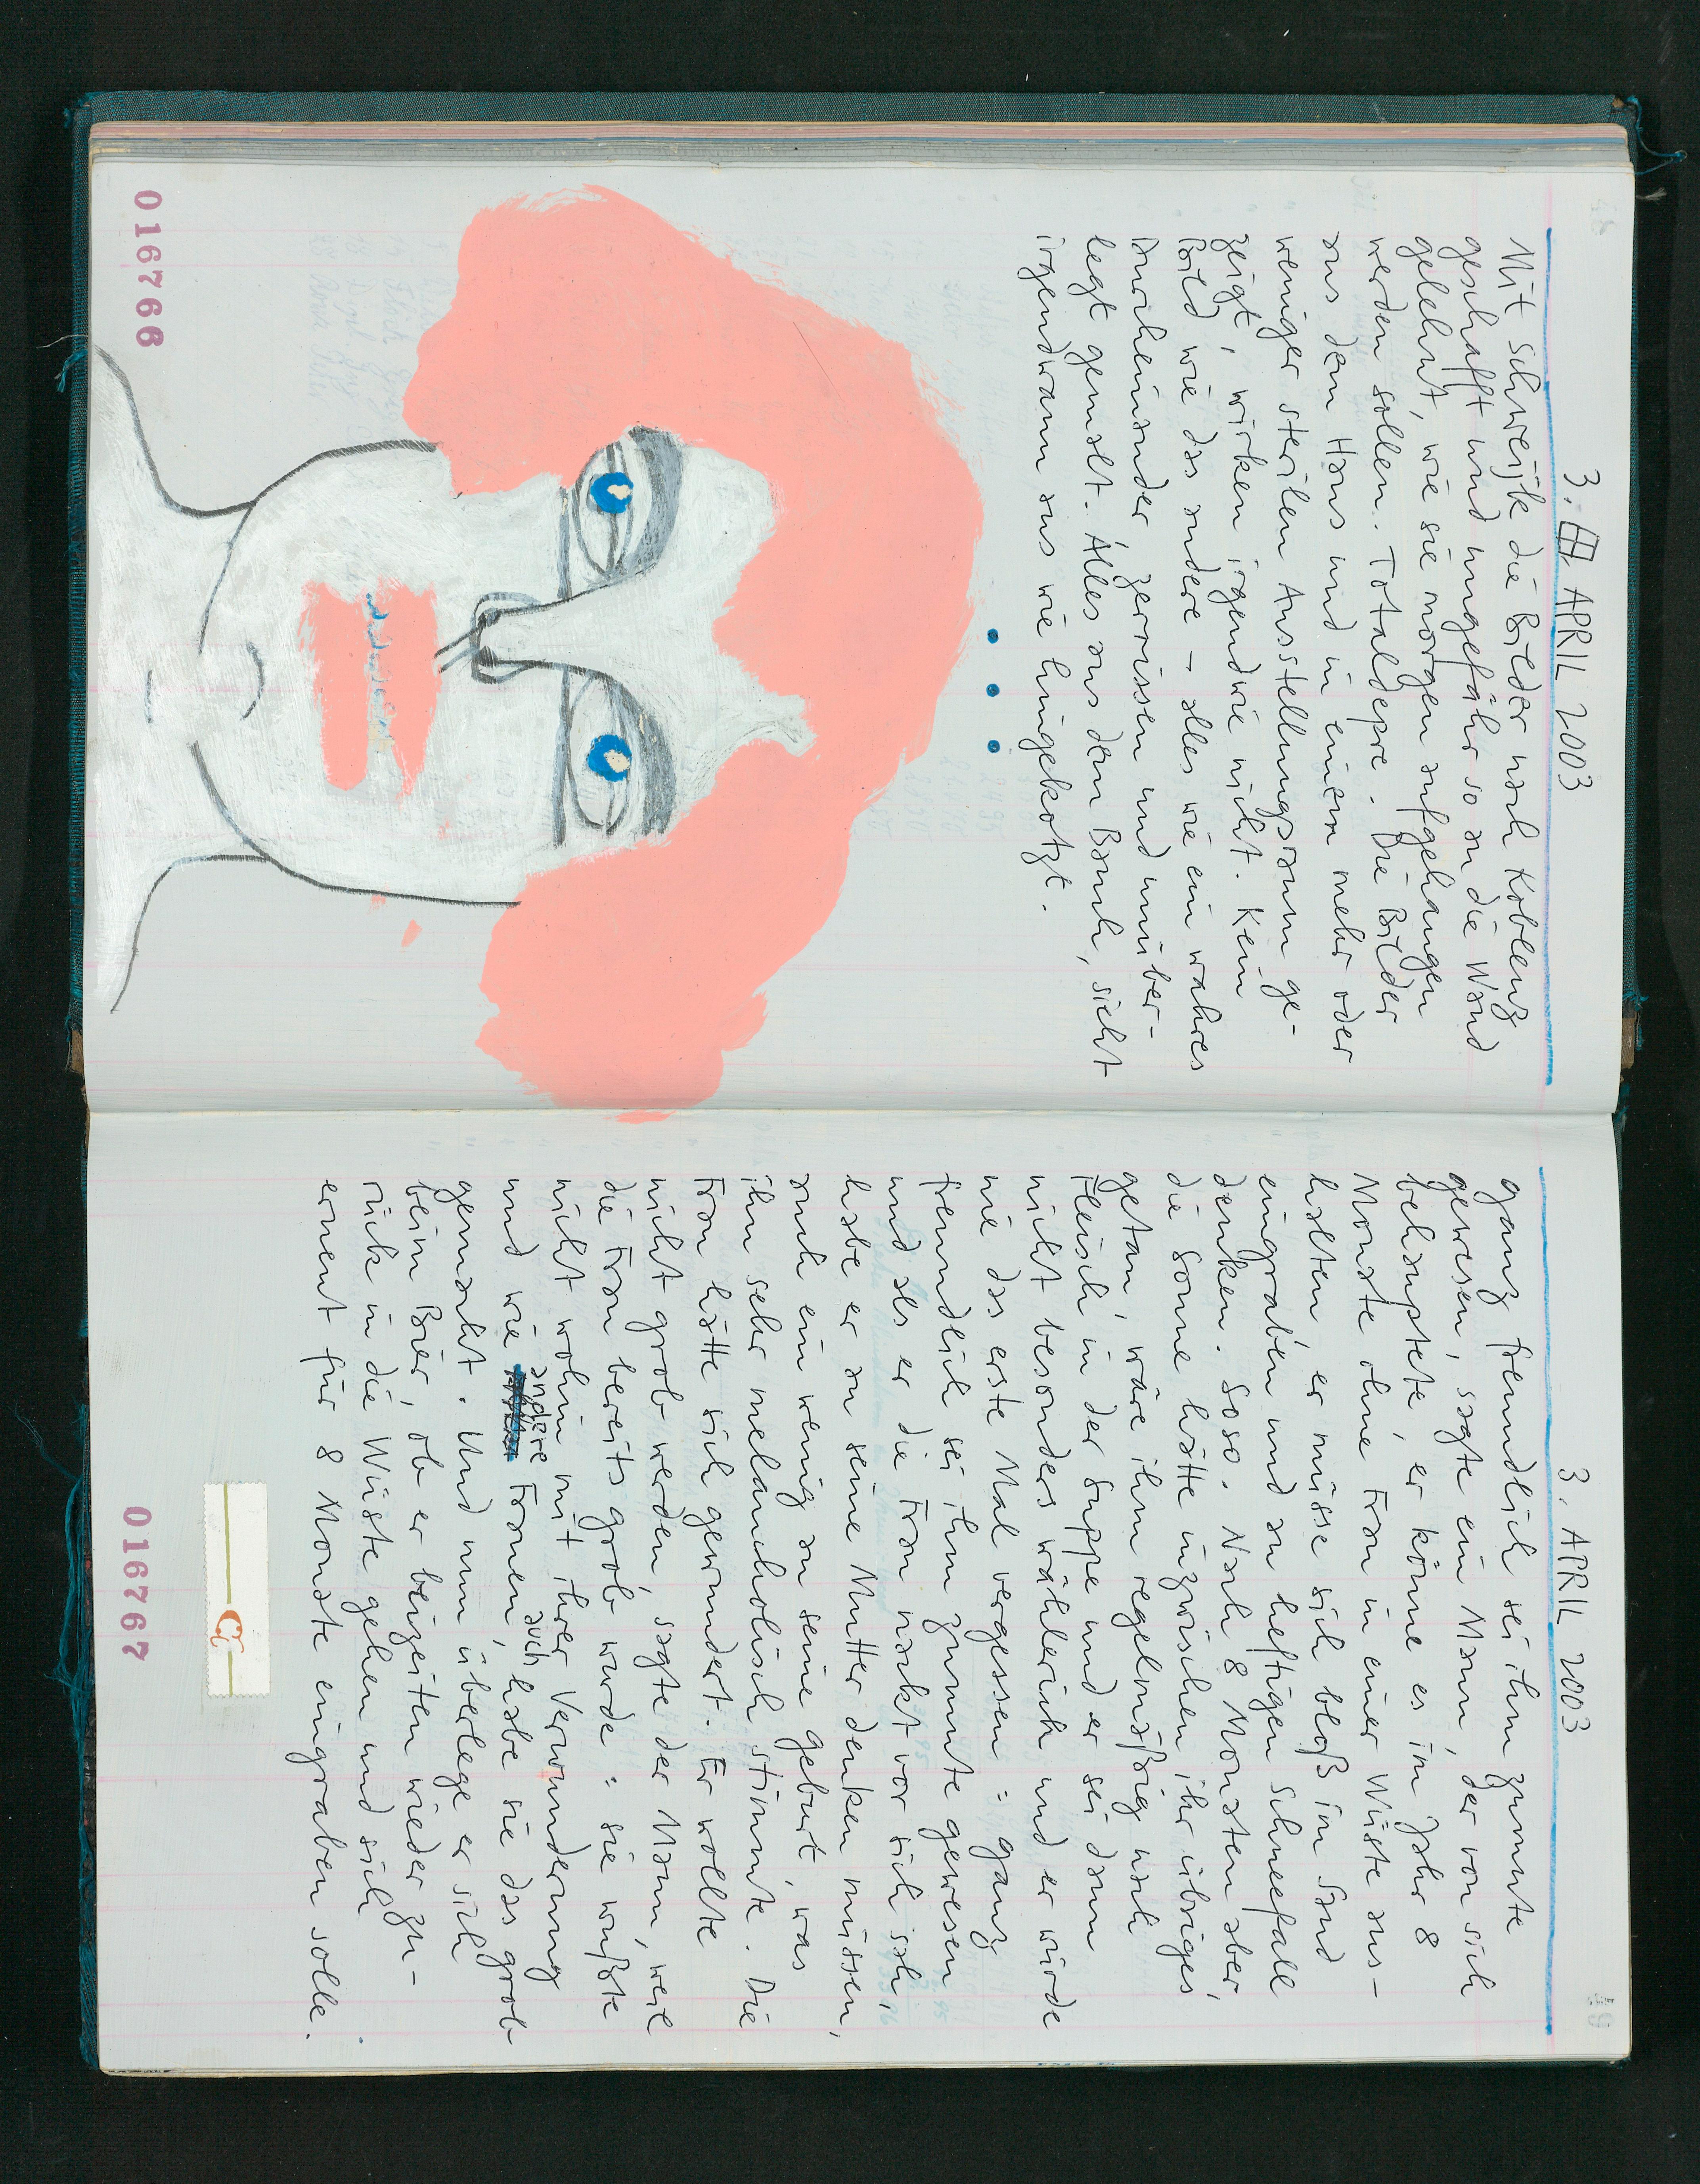 3. APRIL 2003
Mit Schweijk die Bilder nach Koblenz
geschafft und ungefähr so an die Wand
gelehnt, wie sie morgen aufgehangen
werden sollen. Totaldepre. Die Bilder
aus dem Haus und in einem mehr oder
weniger sterilen Ausstellungsraum ge-
zeigt, wirken irgendwie nicht. Kein
Bild wie das andere – alles wie ein wahres
Durcheinander, zerrissen und unüber-
legt gemalt. Alles aus dem Bauch, sieht
irgendwann aus wie hingekotzt.
016766
3. APRIL 2003
ganz freundlich sei ihm zumute
gewesen, sagte ein Mann, der von sich
behauptete, er könne es im Jahr 8
Monate ohne Frau in einer Wüste aus-
halten, er müsse sich bloß im Sand
eingraben und an heftigen Schneefall
denken. Soso. Nach 8 Monaten aber,
die Sonne hätte inzwischen ihr übriges
getan, wäre ihm regelmäßig nach
Fleisch in der Suppe und er sei dann
nicht besonders wählerisch und er würde
nie das erste Mal vergessen: ganz
freundlich sei ihm zumute gewesen
und als er die Frau nackt vor sich sah,
habe er an seine Mutter denken müssen,
auch ein wenig an seine Geburt, was
ihn sehr melancholisch stimmte. Die
Frau hätte sich gewundert. Er wollte
nicht grob werden, sagte der Mann, weil
die Frau bereits grob wurde: sie wußte
nicht wohin mit ihrer Verwunderung
und wie andere Frauen auch, habe sie das grob
gemacht. Und nun überlege er sich
beim Bier, ob er beizeiten wieder zu-
rück in die Wüste gehen und sich
erneut für 8 Monate eingraben solle.
016767